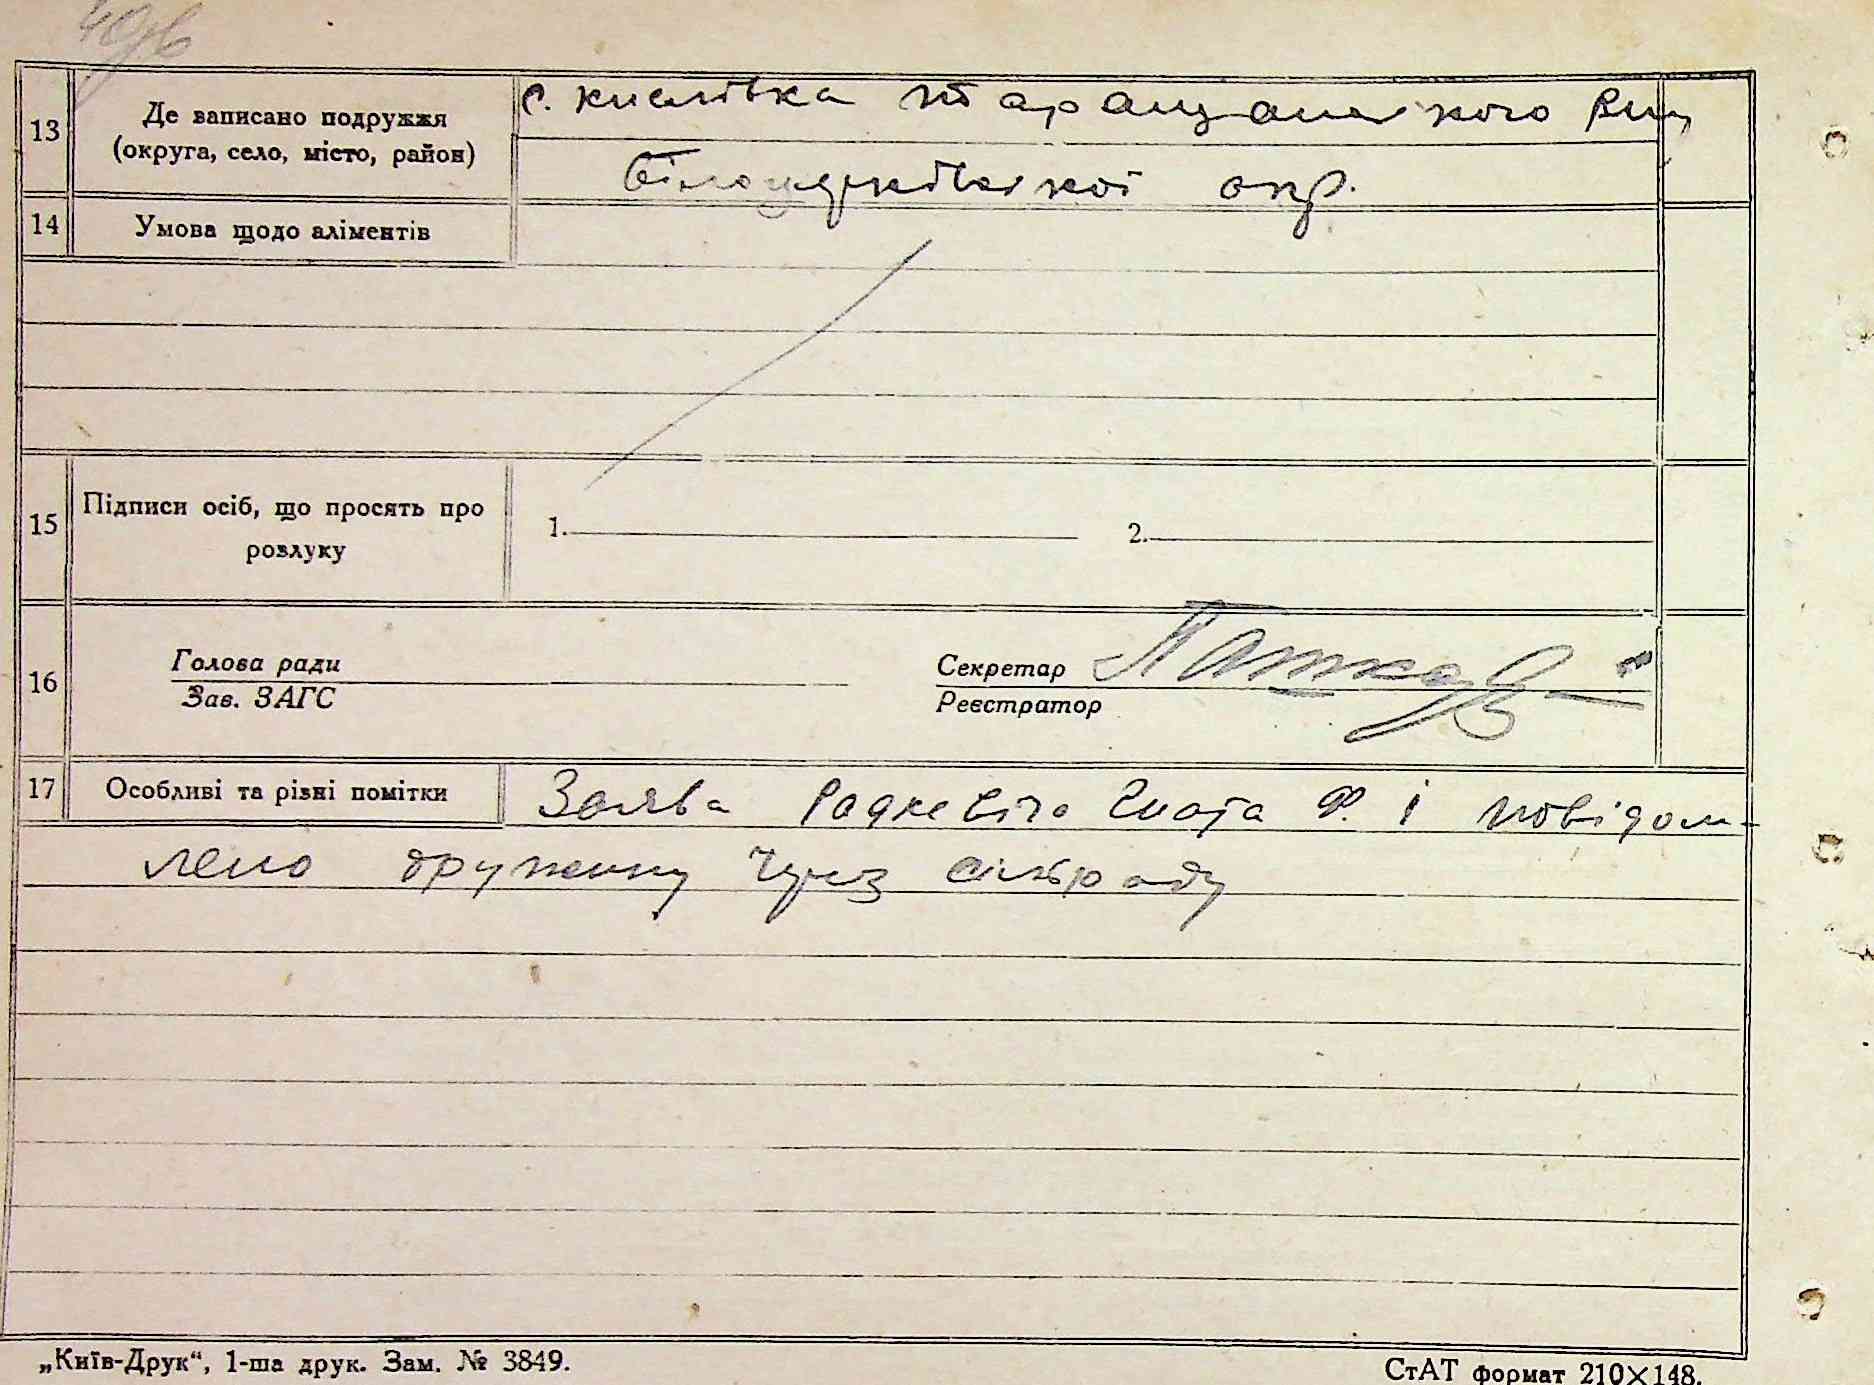 13
Де записано подружжя
(округа, село, місто, район)
с. Кислівка Таращанського р-ну
Білоцерківської окр.
14
Умова щодо аліментів
15
Підписи осіб, що просять про
розлуку
1.
2.
16
Голова ради
Зав. ЗАГС
Секретар
Реєстратор
17
Особливі та різні помітки
Заява Радкевіча Гната Ф. і повідом-
лено дружину через сільраду
„Київ-Друк“, 1-ша друк. Зам. № 3849.
СтАТ формат 210×148.